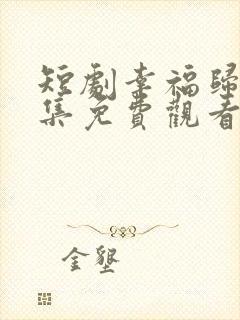 短劇幸福歸
集免費觀看
金墾